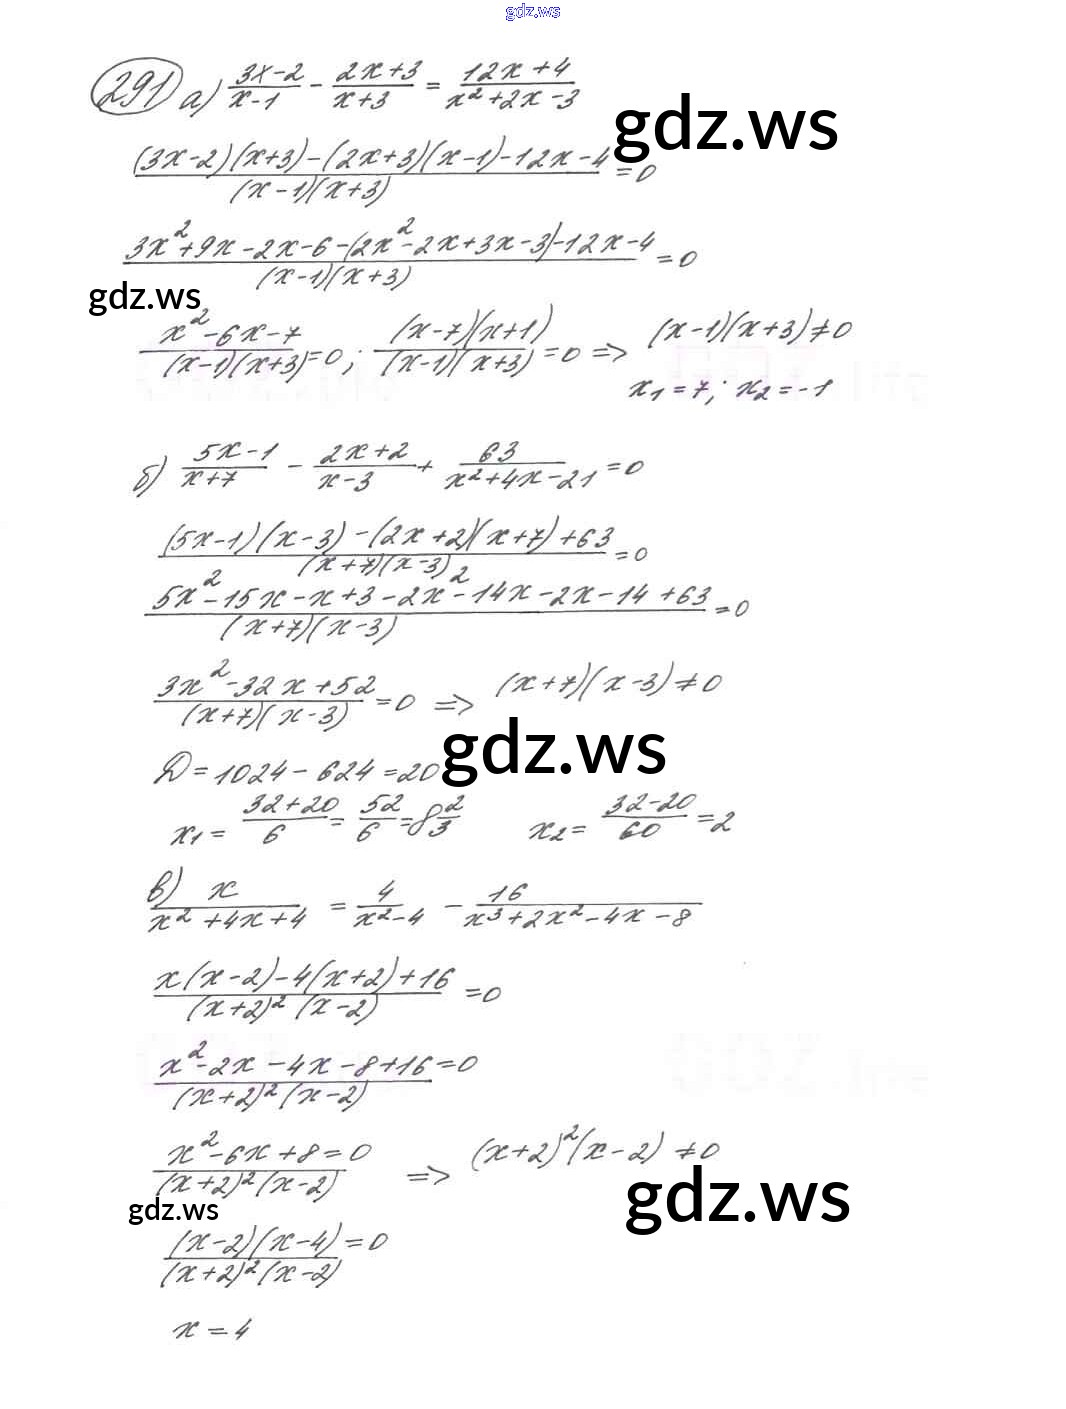 gdz.ws
291 а) (3x-2)/(x-1) - (2x+3)/(x+3) = (12x+4)/(x²+2x-3)
gdz.ws
((3x-2)(x+3)-(2x+3)(x-1)-12x-4)/((x-1)(x+3)) =0
(3x²+9x-2x-6-(2x²-2x+3x-3)-12x-4)/((x-1)(x+3)) =0
gdz.ws
(x²-6x-7)/((x-1)(x+3)) =0; ((x-7)(x+1))/((x-1)(x+3)) =0 => (x-1)(x+3)≠0
x₁=7; x₂=-1
б) (5x-1)/(x+7) - (2x+2)/(x-3) + 63/(x²+4x-21) =0
((5x-1)(x-3)-(2x+2)(x+7)+63)/((x+7)(x-3)) =0
(5x²-15x-x+3-2x²-14x-2x-14+63)/((x+7)(x-3)) =0
(3x²-32x+52)/((x+7)(x-3)) =0 => (x+7)(x-3)≠0
gdz.ws
Д=1024-624=20
x₁= (32+20)/6 = 52/6 =8 2/3 x₂= (32-20)/60 =2
в) x/(x²+4x+4) = 4/(x²-4) - 16/(x³+2x²-4x-8)
(x(x-2)-4(x+2)+16)/((x+2)²(x-2)) =0
(x²-2x-4x-8+16)/((x+2)²(x-2)) =0
(x²-6x+8)/((x+2)²(x-2)) =0 => (x+2)²(x-2)≠0
gdz.ws
gdz.ws
((x-2)(x-4))/((x+2)²(x-2)) =0
x=4